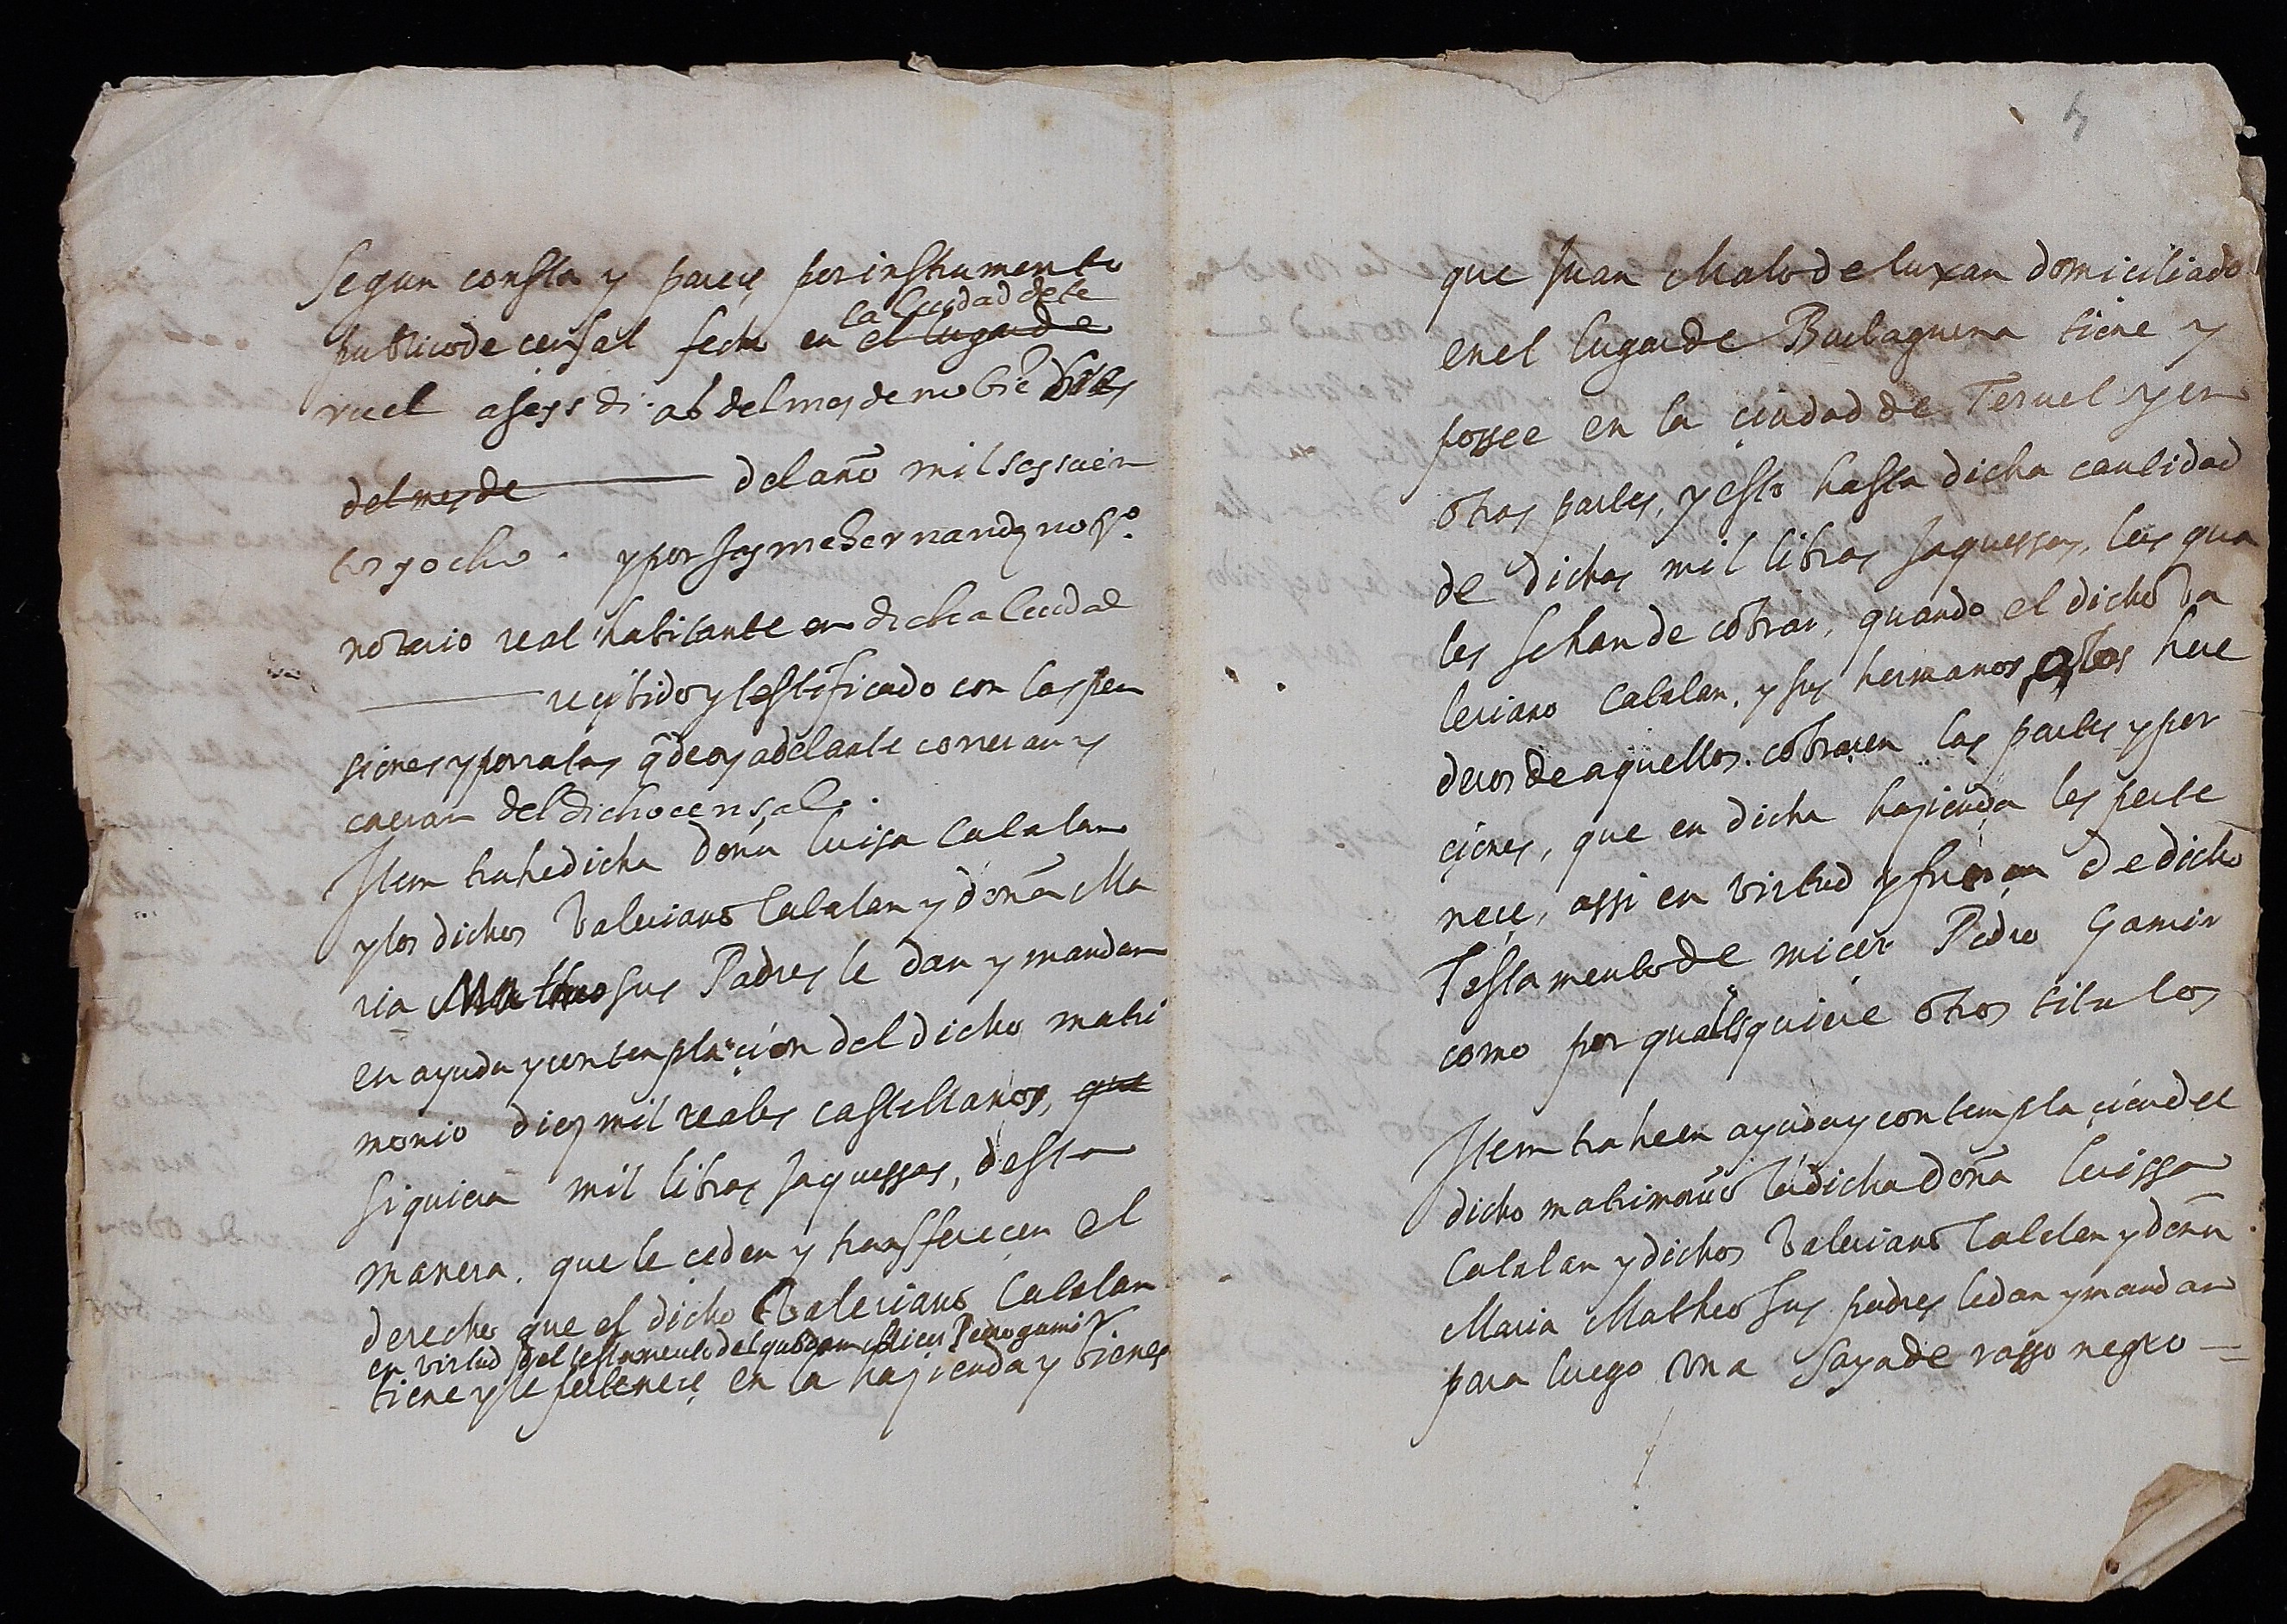 segun consta y pareçe por instrumento
la Ciudad de te
publico de censal fecho en el lugar de
ruel a seys di as del mes de nobie
del mes de del año mil seyscien
tos y ocho y por Jayme hernandez no
notario real habitante en dicha Ciudad
reçibido y testificado con las pen
siones y porratas q̃ de oy adelante correran y
caeran del dicho censal.
Item trahe dicha doña luisa Catalan
y los dichos Valeriano Catalan y doña Ma
ria Matheo sus Padres le dan y mandan
en ayuda y contemplaçion del dicho matri
monio diez mil reales castellanos, que
siquiera mil libras Jaquessas, desta
manera. que le ceden y transfferecen el
derecho que el dicho Valeriano Catalan
en virtud del testamento del quondam Micer Pedro gamir
tiene y le perteneçe en la hazienda y bienes
5
que Juan Malo de luxan domiciliado
en el lugar de Baclaguena tiene y
possee en la ciudad de Teruel y en
otras partes, y esto hasta dicha cantidad
de dichas mil libras Jaquessas, las qua
les se han de cobrar, quando el dicho Va
leriano Catalan, y sus hermanos, o los here
deros de aquellos. cobraren las partes y por
çiones, que en dicha hazienda les perte
neçe, assi en virtud y fuerça de dicho
Testamento de micer Pedro Gamir
como por qualesquiere otros titulos
Item trahe en ayuda y contemplaçion del
dicho matrimonio la dicha doña luissa
Catalan y dichos Valeriano Catalan y doña
Maria Matheo sus padres le dan y mandan
para luego una saya de rasso negro